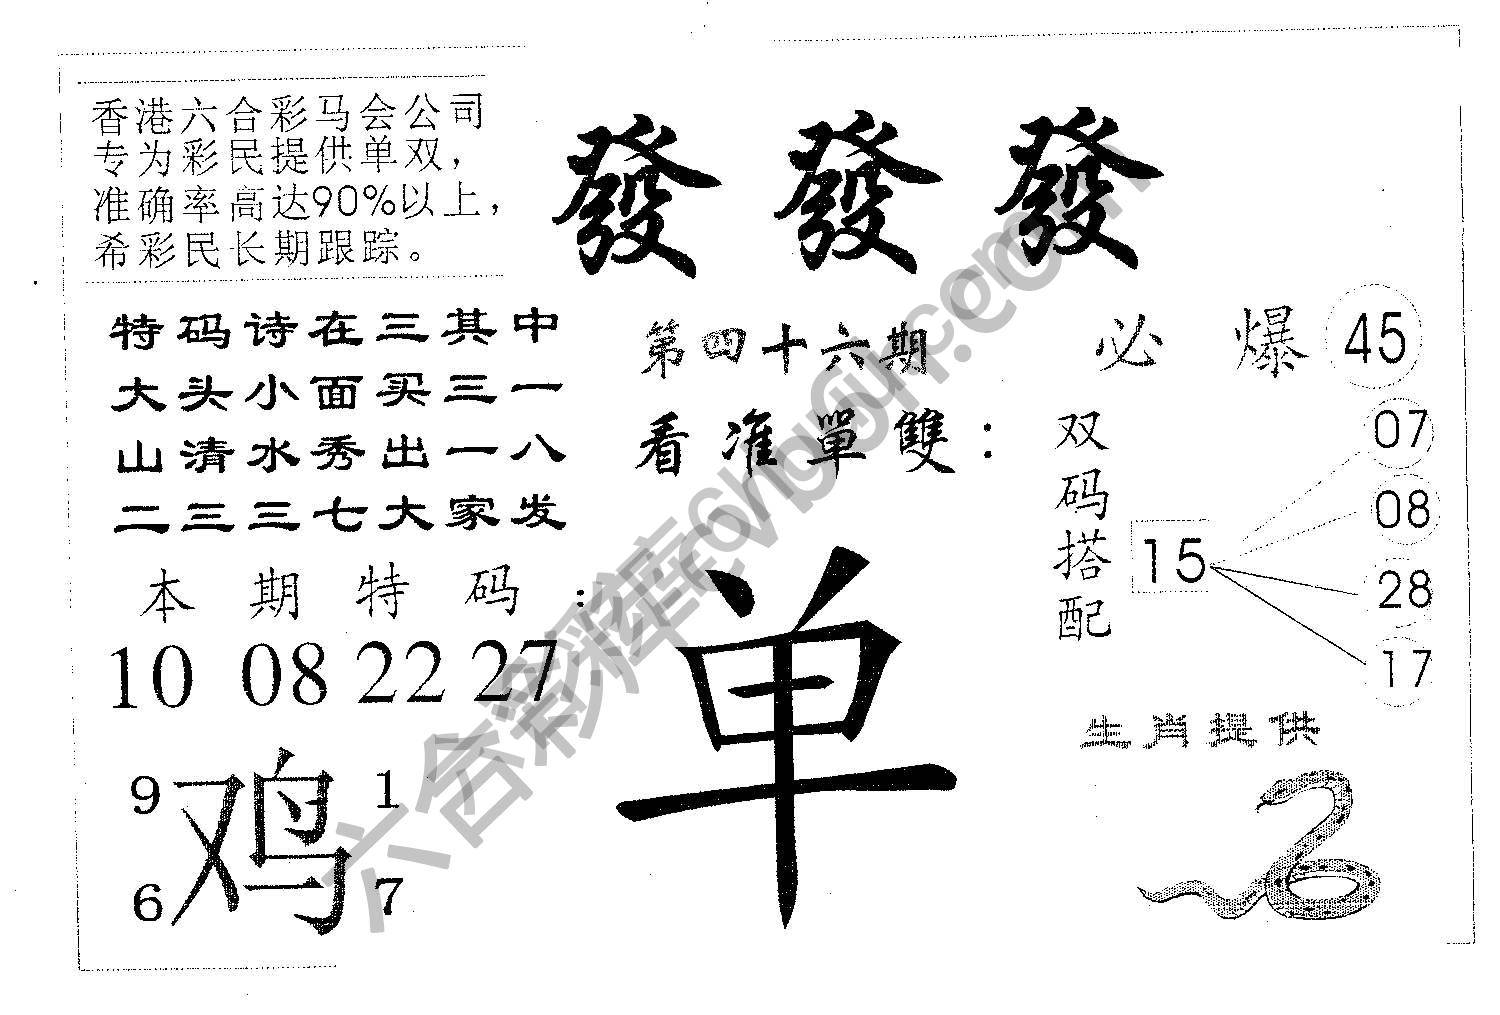 香港六合彩马会公司
专为彩民提供单双，
准确率高达90%以上，
希彩民长期跟踪。
發 發 發
特码诗在三其中
大头小面买三一
山清水秀出一八
二三三七大家发
第四十六期
看准單雙：
单
必 爆 45
双码搭配
15
07
08
28
17
本期特码：
10 08 22 27
9 1
鸡
6 7
生肖提供
六合彩库